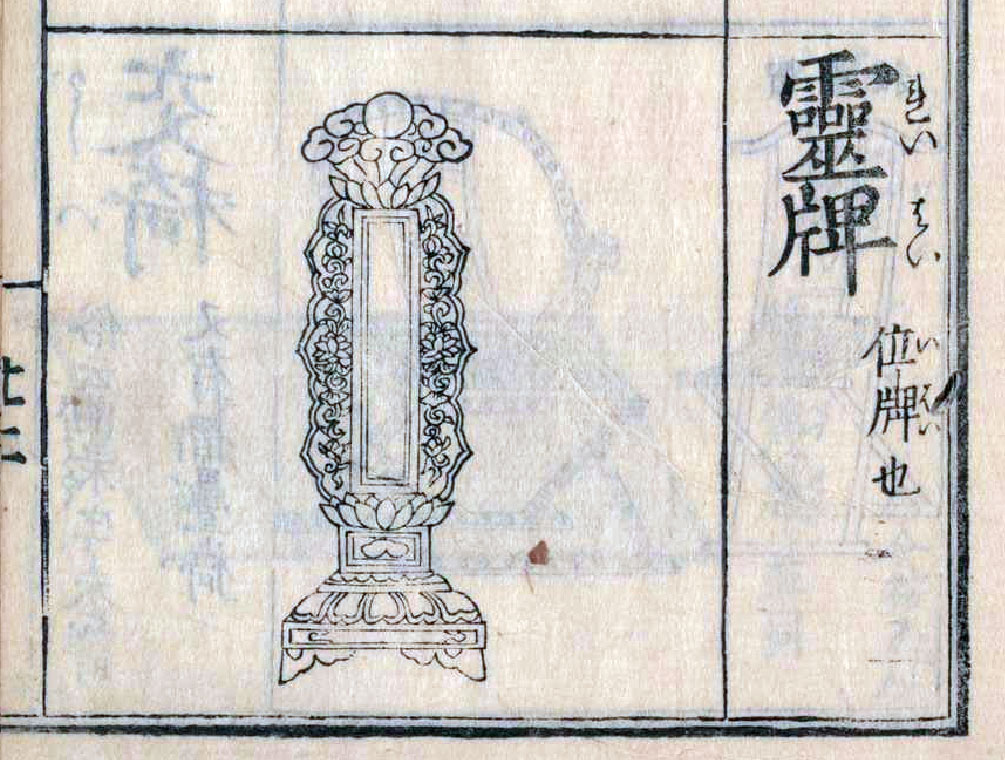 靈牌
れいはい
位牌也
いはい